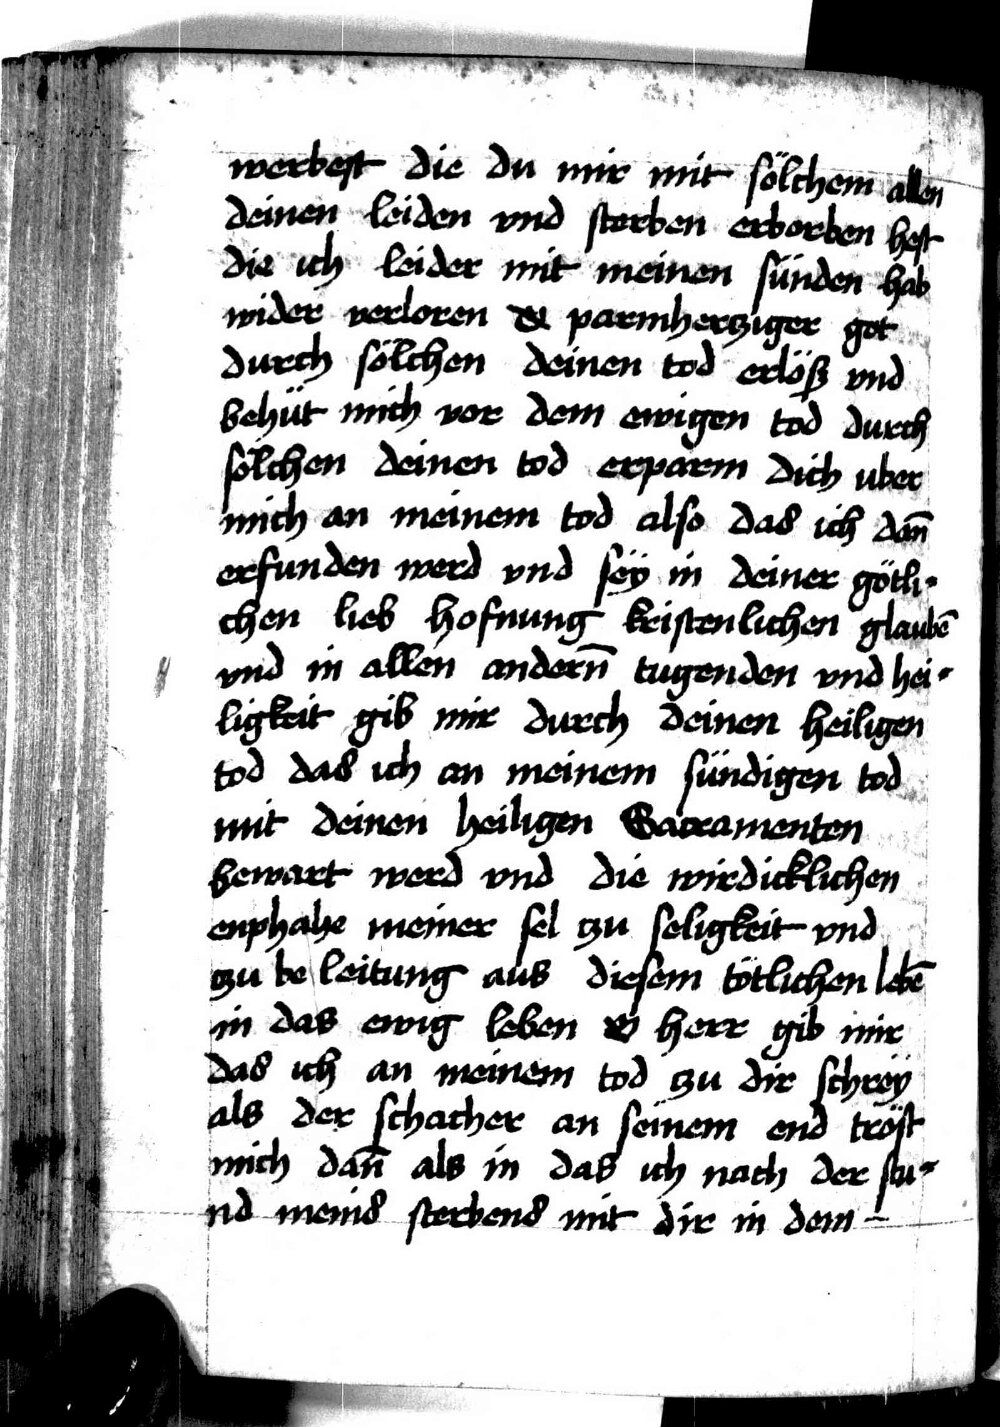 werbest die du mir mit sölchem allen
deinen leiden vnd sterben erborben hest
die ich leider mit meinen sünden hab
wider verloren O parmhertziger got
durch sölchen deinen tod erlöß vnd
behüt mich vor dem ewigen tod durch
sölchen deinen tod erparm dich uber
mich an meinem tod also das ich dan̄
erfunden werd vnd seÿ in deiner götli-
chen lieb hofnung kristenlichen glaubē
vnd in allen andern̄ tugenden vnd hei-
ligkeit gib mir durch deinen heiligen
tod das ich an meinem sündigen tod
mit deinen heiligen Sacramenten
bewart werd vnd die wirdicklichen
enphahe meiner sel tzu seligkeit vnd
tzu beleitung aus diesem tötlichen lebē
in das ewig leben O herr gib mir
das ich an meinem tod tzu dir schreÿ
als der schacher an seinem end tröst
mich dan̄ als in das ich nach der stu-
nd meins sterbens mit dir in dem